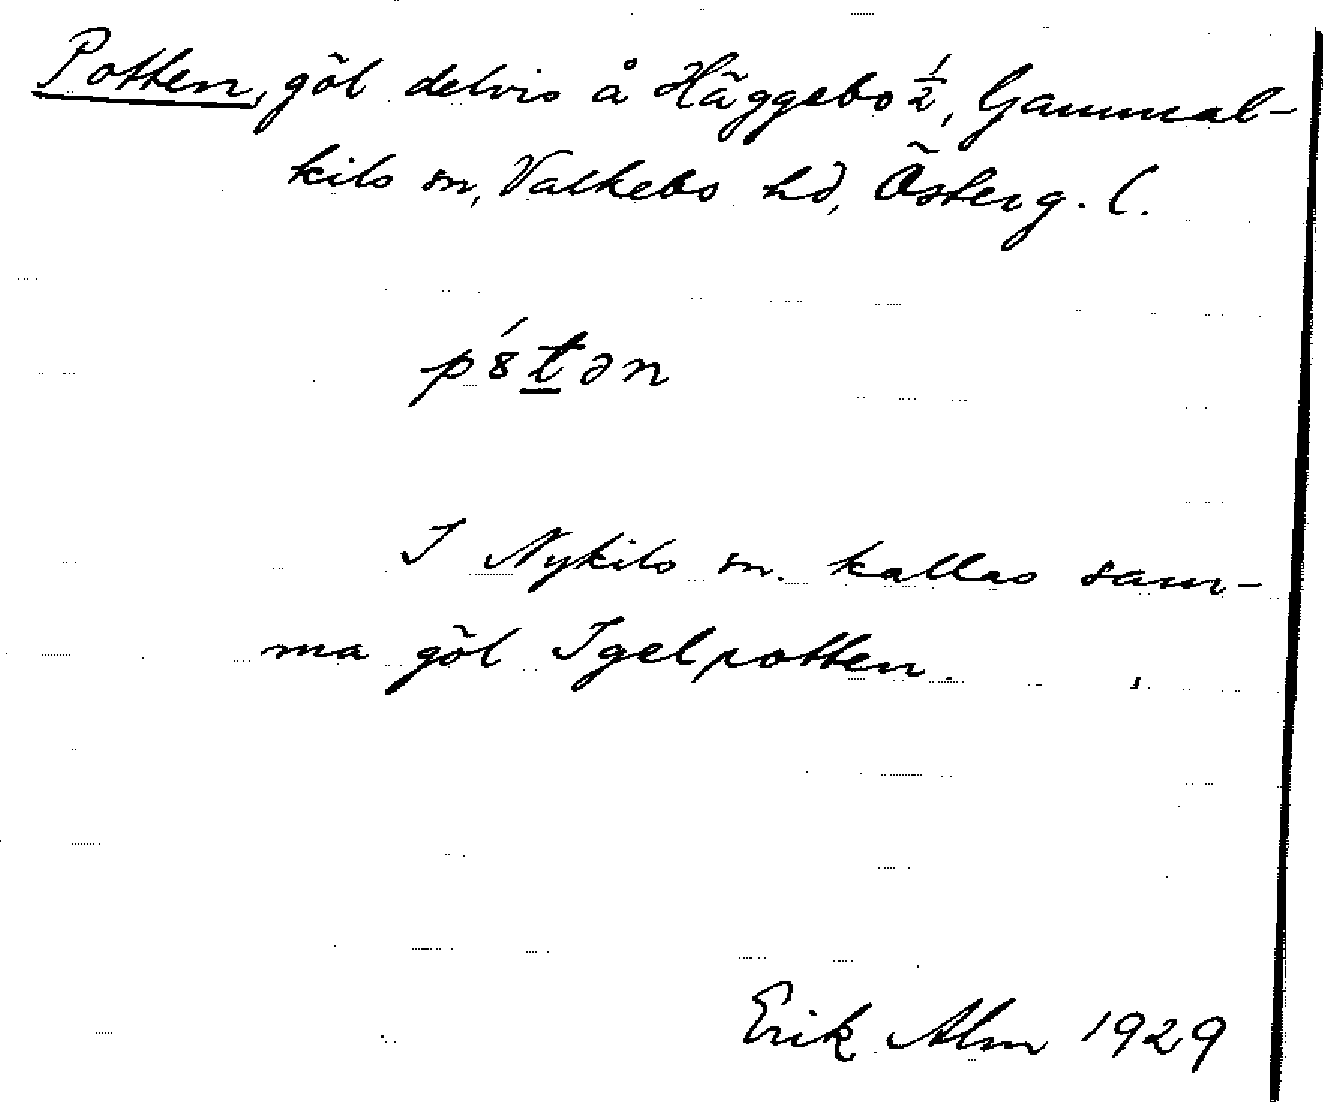 Potten, göl delvis å Häggebo ½, Gammal-
kils sn, Valkebo hd, Österg. l.
p´8tən
I Nykils sn. kallas sam-
ma göl Igelpotten.
Erik Alm 1929